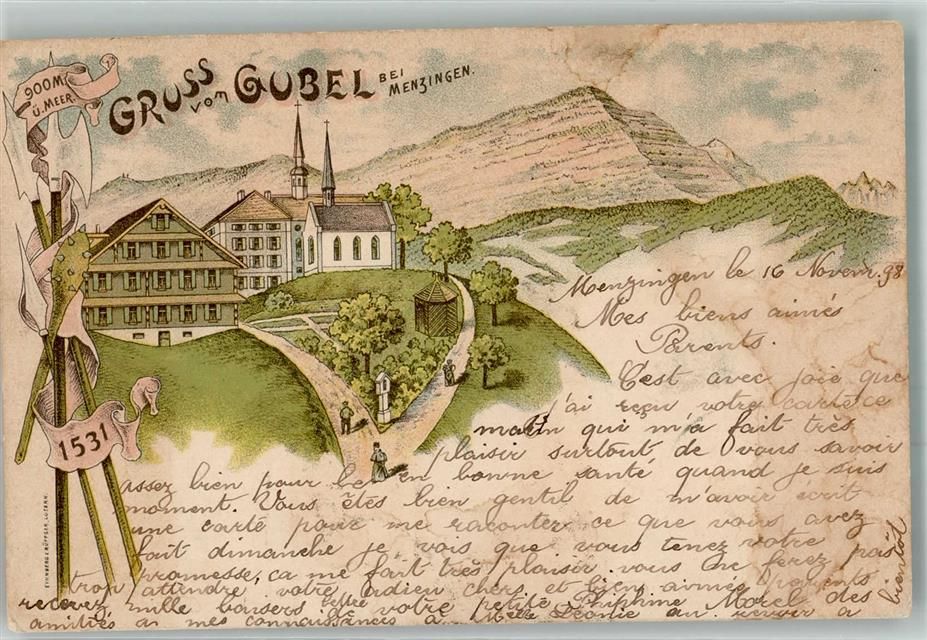 900M.
ü. MEER.
GRUSS VOM GUBEL BEI
MENZINGEN.
1531
Menzingen le 16 Novem. 98
Mes biens aimés
Parents.
C'est avec joie que
j'ai reçu votre carte ce
matin qui m'a fait très
plaisir surtout de vous savoir
assez bien pour le en bonne santé quand je suis
moment. Vous êtes bien gentil de m'avoir écrit
une carte pour me raconter ce que vous avez
fait dimanche je vois que vous tenez votre
promesse, ca me fait très plaisir vous ne ferez pas
trop attendre votre adieu chers et bien aimés parents.
recevez mille baisers de votre petite Morel des
amitiés a mes connaissances a Mlle Léonie au revoir a
bientôt